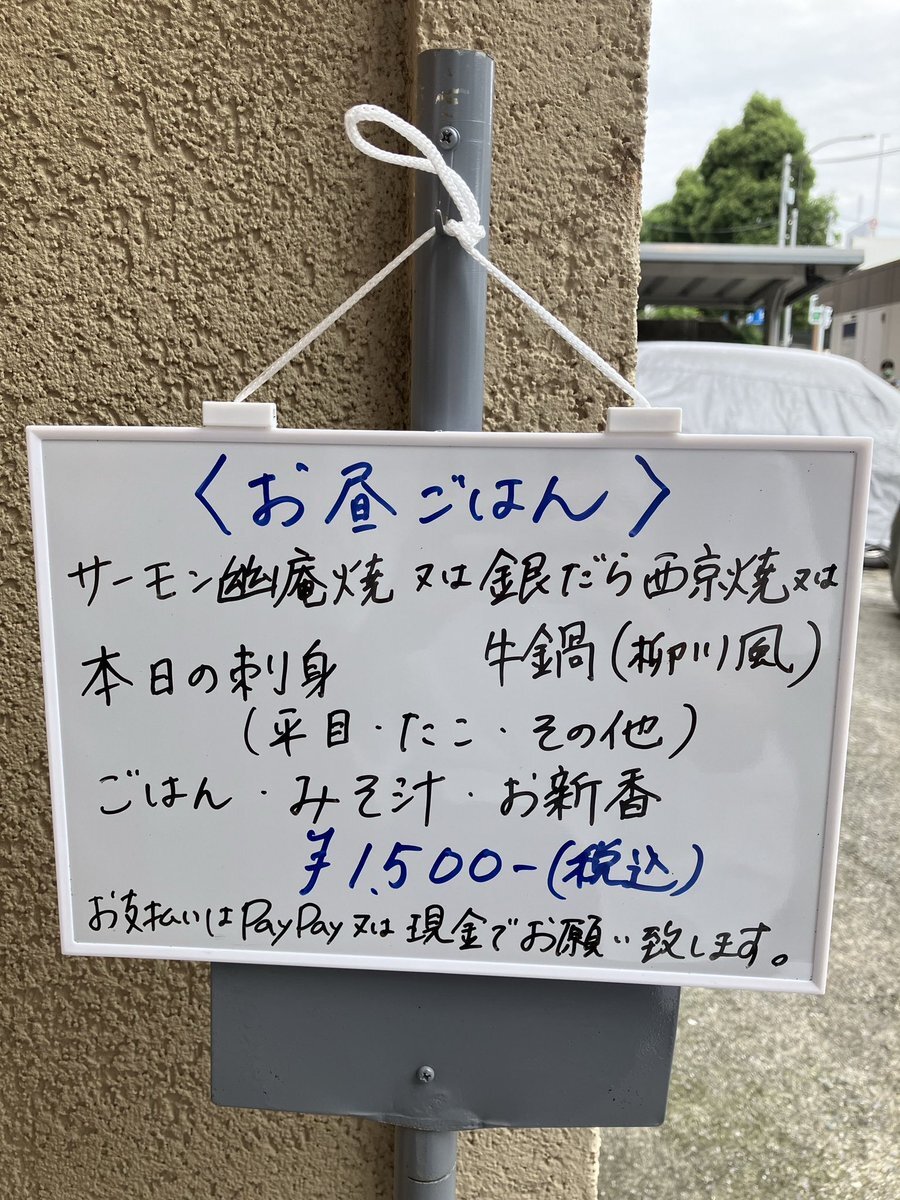 〈お昼ごはん〉
サーモン幽庵焼 又は 銀だら西京焼又は
牛鍋(柳川風)
本日の刺身
(平目・たこ・その他)
ごはん・みそ汁・お新香
¥1,500-(税込)
お支払いはPayPay又は現金でお願い致します。